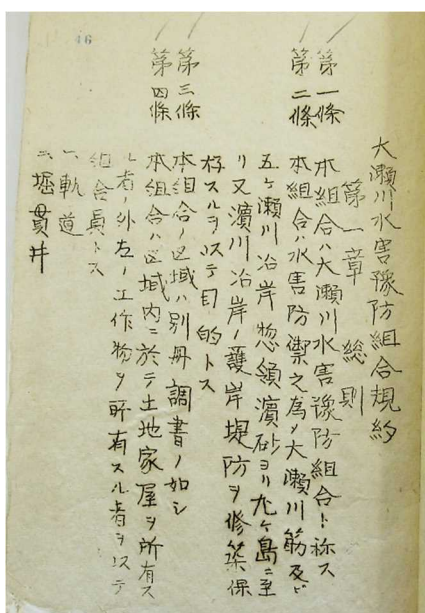 46
大瀬川水害豫防組合規約
第一章 総則
第一條 本組合ハ大瀬川水害豫防組合ト称ス
第二條 本組合ハ水害防禦之為メ大瀬川筋及ビ
五ヶ瀬川沿岸惣領濱砂ヨリ九ヶ島ニ至
リ又濱川沿岸ノ護岸堤防ヲ修築保
存スルヲ以テ目的トス
第三條 本組合ノ区域ハ別冊調書ノ如シ
第四條 本組合ハ区域内ニ於テ土地家屋ヲ所有ス
ル者ノ外左ノ工作物ヲ所有スル者ヲ以テ
組合員トス
一、軌道
二、堀貫井